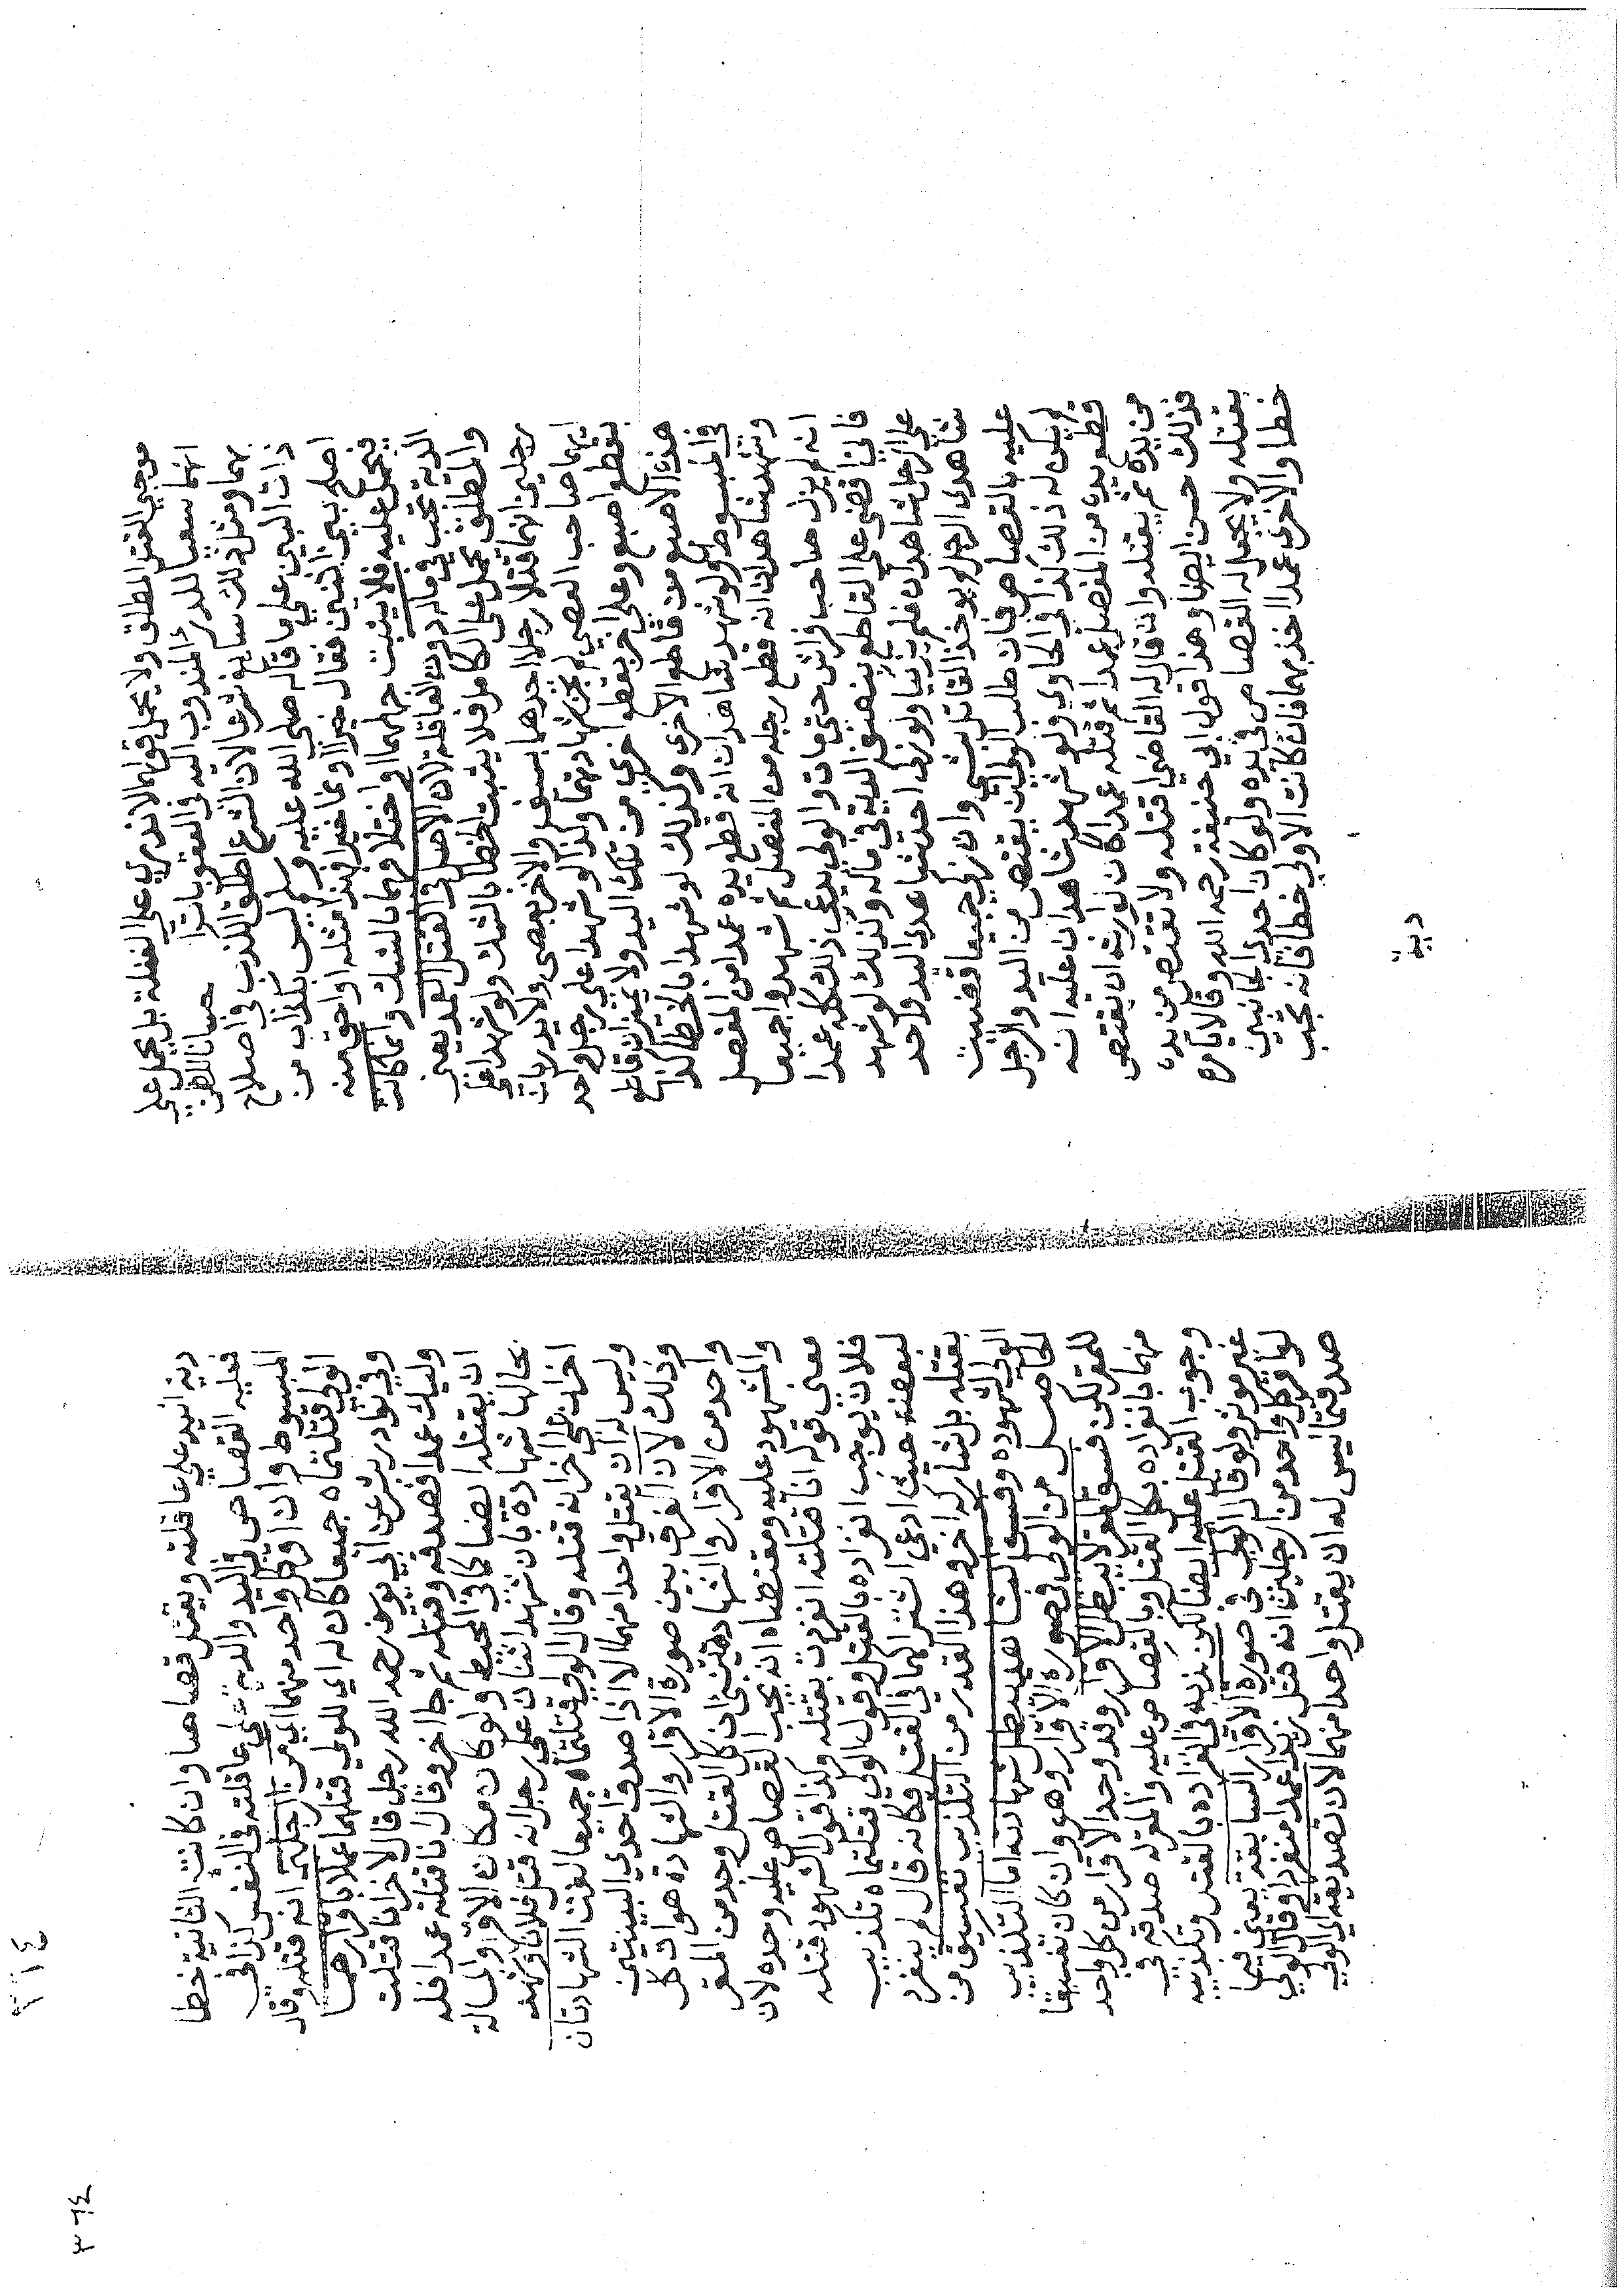 موجبي القتل المطلق ولا يحمل قولهما لا ندري على الغفلة بل يحمل على
انهما سعيا للدرء المندوب اليه في العقوبات احسانا للظن
بهما ومثل ذلك سايغ شرعا لان الشرع اطلق الكذب في اصلاح
ذات البين على ما قاله صلى الله عليه وسلم ليس بكذاب من
اصلح بين اثنين فقال خيرا او نما خيرا فهذا مثله او احق منه
فيحمل عليه فلا يثبت جهلهما او اختلافهما بالشك وانما كانت
الدية تجب في ماله دون العاقلة لان الاصل في القتل العمد يعني
والمطلق يحمل على الكامل فلا يثبت الخطا بالشك ولو شهدا على
رجلين انهما قتلا رجلا احدهما بسيف والاخر بعصى ولا يدريان
ايهما صاحب العصى لم تجز شهادتهما وكذا لو شهدا على رجل واحد
بقطع اصبع وعلى اخر بقطع اخرى من تلك اليد ولا يميزان قاطع
هذه الاصبع من قاطع الاخرى وكذلك لو شهدا بالخطا كذا
في المبسوط ولو شهد شاهدان انه قطع يده عمدا من المفصل
وشهد شاهدان انه قطع رجله من المفصل ثم شهدوا جميعا
انه لم يزل صاحب فراش حتى مات والولي يدعي ذلك كله عمدا
فاني اقضي على القاطع بنصف الدية في ماله وكذلك لو شهد
على الرجل شاهدان فلم يزكيا ولو زكى احد شاهدي اليد واحد
شاهدي الرجل لم يوخذ القاتل بشي وان زكي جميعا قضيت
عليه بالقصاص فان طلب الولي ان يقتص من اليد والرجل
لم يكن له ذلك كذا في الحاوي ولو شهد شاهدان عليه انه
قطع يده من المفصل عمدا ثم قتله عمدا كان لوارثه ان يقتص
من يده ثم يقتله وان قال له القاضي اقتله ولا تقتص من يده
فذلك حسن ايضا وهذا قول ابي حنيفة رحمه الله وقالا يامره
بقتله ولا يجعل له القصاص في يده ولو كان احدى الجنايتين
خطا والاخرى عمدا اخذ بهما فان كانت الاولى خطا فانه تجب
دية
٣١٤
دية اليد على عاقلته ويقتل قصاصا وان كانت الثانية خطا
فعليه القصاص في اليد والدية على عاقلته في النفس كذا في
المبسوط وان اقر كل واحد منهما اي من الرجلين انه قتله وقال
الولي قتلتماه جميعا كان له اي للولي قتلهما عملا باقرارهما
وفي نوادر بشر عن ابي يوسف رحمه الله رجل قال لاخر انا قتلت
وليك عمدا فصدقه وقتله ثم جا اخر وقال انا قتلته عمدا فله
ان يقتله ايضا كما في المحيط ولو كان مكان الاقرار والمسالة
بحالها شهادة بان شهد اثنان على رجل انه قتل فلانا وشهد
اخران على اخر انه قتله وقال الولي قتلتماه جميعا لغت الشهادتان
وليس له ان يقتل واحدا منهما الا اذا صدق احدى البينتين
وذلك لان الفرق بين صورة الاقرار والشهادة هو ان كل
واحد من الاقرار والشهادتين ان كل القتل وجد من المقر
والمشهود عليه ومقتضاه ان يجب القصاص عليه وحده لان
معنى قوله انا قتلته انفردت بقتله وكذا قول الشهود قتله
فلان يوجب انفراده بالقتل وقول الولي قتلتماه تكذيب
لبعضه حيث ادعى اشتراكهما في القتل فكانه قال لم ينفرد
بقتله بل شاركه اخر وهذا القدر من التكذيب تفسيق من
الولي لشهوده وفسق الشاهد يبطل شهادته اما التكذيب
الحاصل من الولي في صورة الاقرار وهو وان كان تفسيقا
للمقر لكن فسق المقر لا يبطل الاقرار وقد وجد الاقرار من كل واحد
منهما بانفراده بكل القتل وبالقصاص عليه والمقر له صدقه في
وجوب القتل عليه ايضا لكن كذبه في انفراده بالقتل وتكذيبه
غير موثر ولو قال الولي في صورة الاقرار السابقة يعني فيما
لو اقر كل واحد من رجلين انه قتل زيدا عمدا منفردا وقال الولي
صدقتما ليس له ان يقتل واحدا منهما لان تصديقه اي الولي
٣٦٤